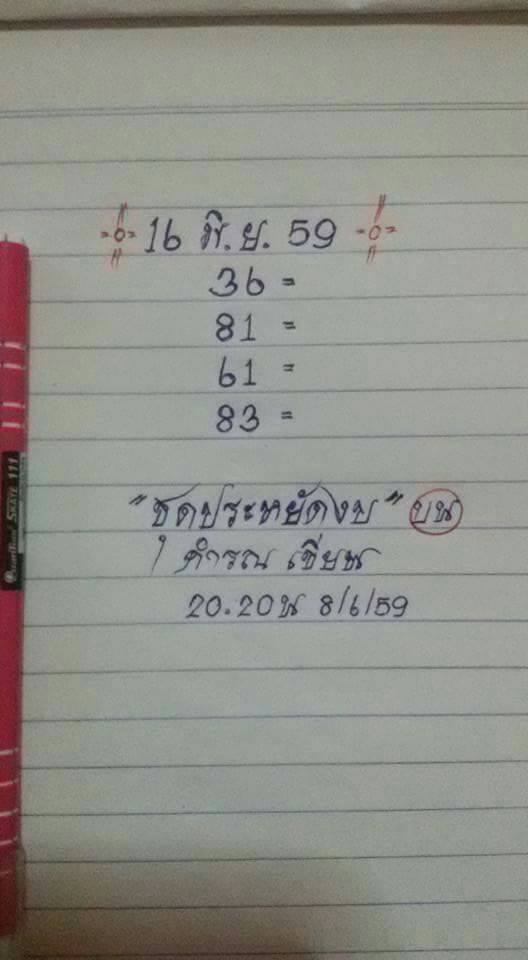 16 มิ.ย. 59
36 =
81 =
61 =
83 =
"ชุดประหยัดงบ" บน
คำรณ เขียน
20.20น 8/6/59
Quantum SKATE 111